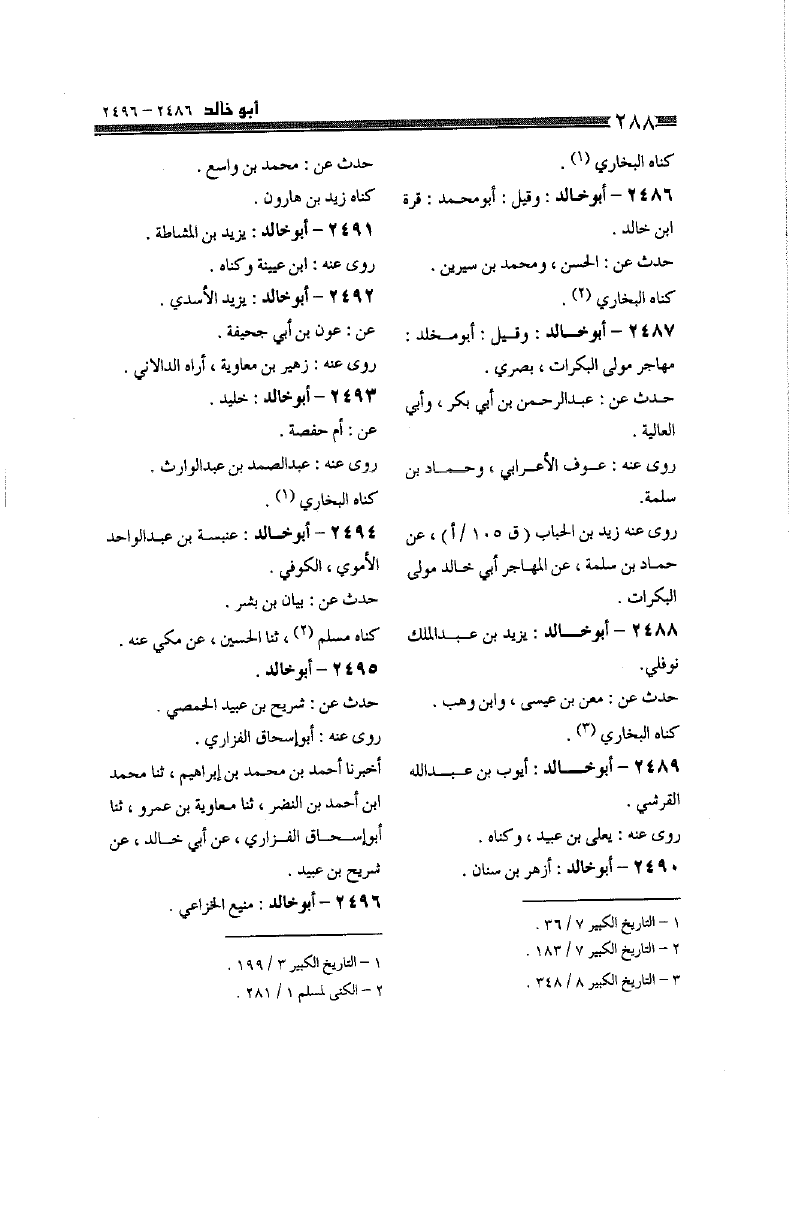 أبو خالد ٢٤٨٦ – ٢٤٩٦
٢٨٨
كناه البخاري (١) .
٢٤٨٦ – أبوخالد : وقيل : أبومحمد : قرة
ابن خالد .
حدث عن : الحسن ، ومحمد بن سيرين .
كناه البخاري (٢) .
٢٤٨٧ – أبوخالد : وقيل : أبومخلد :
مهاجر مولى البكرات ، بصري .
حدث عن : عبدالرحمن بن أبي بكر ، وأبي
العالية .
روى عنه : عوف الأعرابي ، وحماد بن
سلمة.
روى عنه زيد بن الحباب ( ق ١٠٥ /أ) ، عن
حماد بن سلمة ، عن المهاجر أبي خالد مولى
البكرات .
٢٤٨٨ – أبوخالد : يزيد بن عبدالملك
نوفلي.
حدث عن : معن بن عيسى ، وابن وهب .
كناه البخاري (٣) .
٢٤٨٩ – أبوخالد : أيوب بن عبدالله
القرشي .
روى عنه : يعلى بن عبيد ، وكناه .
٢٤٩٠ – أبوخالد : أزهر بن سنان .
١ – التاريخ الكبير ٧ / ٣٦ .
٢ – التاريخ الكبير ٧ / ١٨٣ .
٣ – التاريخ الكبير ٨ / ٣٤٨ .
حدث عن : محمد بن واسع .
كناه زيد بن هارون .
٢٤٩١ – أبوخالد : يزيد بن المشاطة .
روى عنه : ابن عيينة وكناه .
٢٤٩٢ – أبوخالد : يزيد الأسدي .
عن : عون بن أبي جحيفة .
روى عنه : زهير بن معاوية ، أراه الدالاني .
٢٤٩٣ – أبوخالد : خليد .
عن : أم حفصة .
روى عنه : عبدالصمد بن عبدالوارث .
كناه البخاري (١) .
٢٤٩٤ – أبوخالد : عنبسة بن عبدالواحد
الأموي ، الكوفي .
حدث عن : بيان بن بشر .
كناه مسلم (٢) ، ثنا الحسين ، عن مكي عنه .
٢٤٩٥ – أبوخالد .
حدث عن : شريح بن عبيد الحمصي .
روى عنه : أبوإسحاق الفزاري .
أخبرنا أحمد بن محمد بن إبراهيم ، ثنا محمد
ابن أحمد بن النضر ، ثنا معاوية بن عمرو ، ثنا
أبوإسحاق الفزاري ، عن أبي خالد ، عن
شريح بن عبيد .
٢٤٩٦ – أبوخالد : منيع الخزاعي .
١ – التاريخ الكبير ٣ / ١٩٩ .
٢ – الكنى لمسلم ١ / ٢٨١ .